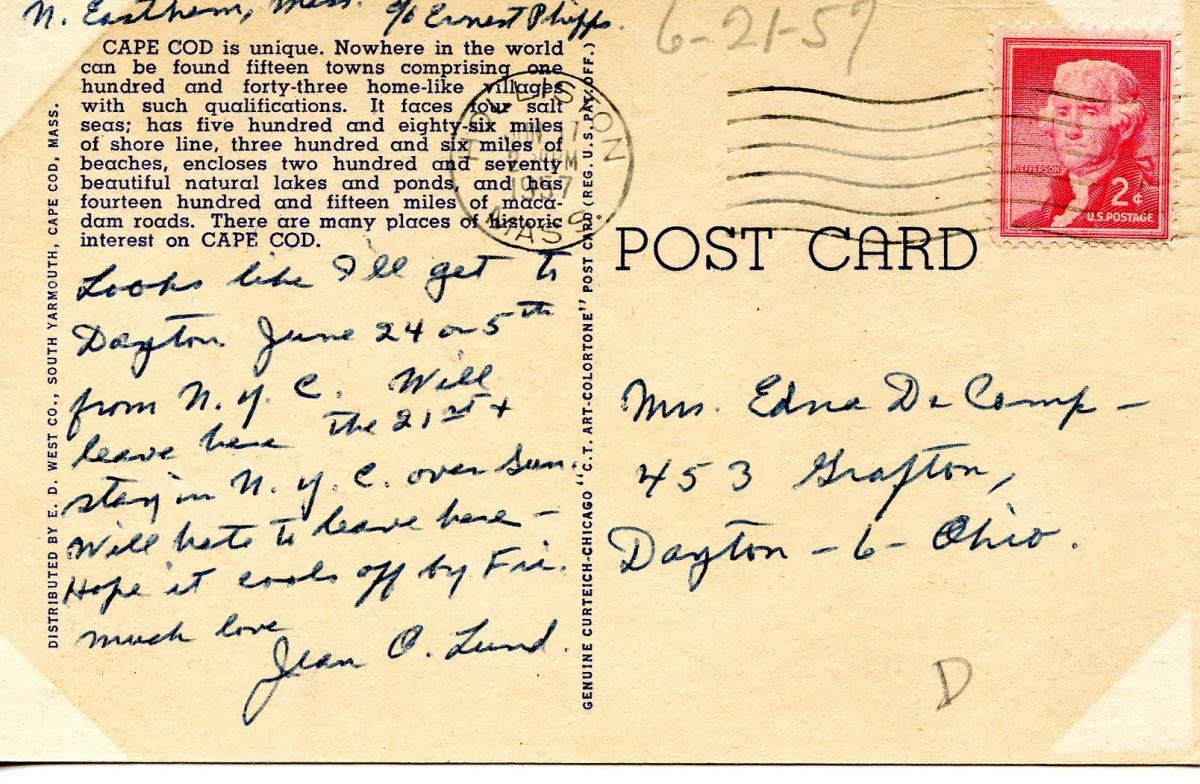 N. Eastham, Mass. c/o Ernest Phipps.
6-21-57
CAPE COD is unique. Nowhere in the world
can be found fifteen towns comprising one
hundred and forty-three home-like villages
with such qualifications. It faces four salt
seas; has five hundred and eighty-six miles
of shore line, three hundred and six miles of
beaches, encloses two hundred and seventy
beautiful natural lakes and ponds, and has
fourteen hundred and fifteen miles of maca-
dam roads. There are many places of historic
interest on CAPE COD.
Looks like I'll get to
Dayton June 24 or 5th
from N.Y.C. Will
leave here the 21st +
stay in N.Y.C. over Sun.
Will hate to leave here -
Hope it cools off by Fri.
Much love
Jean C. Lund.
DISTRIBUTED BY E. D. WEST CO., SOUTH YARMOUTH, CAPE COD, MASS.
GENUINE CURTEICH-CHICAGO "C.T. ART-COLORTONE" POST CARD (REG. U.S. PAT. OFF.)
JUN 17
PM
1957
MASS.
JEFFERSON
2¢
U.S. POSTAGE
POST CARD
Mrs. Edna De Camp -
453 Grafton,
Dayton - 6 - Ohio.
D